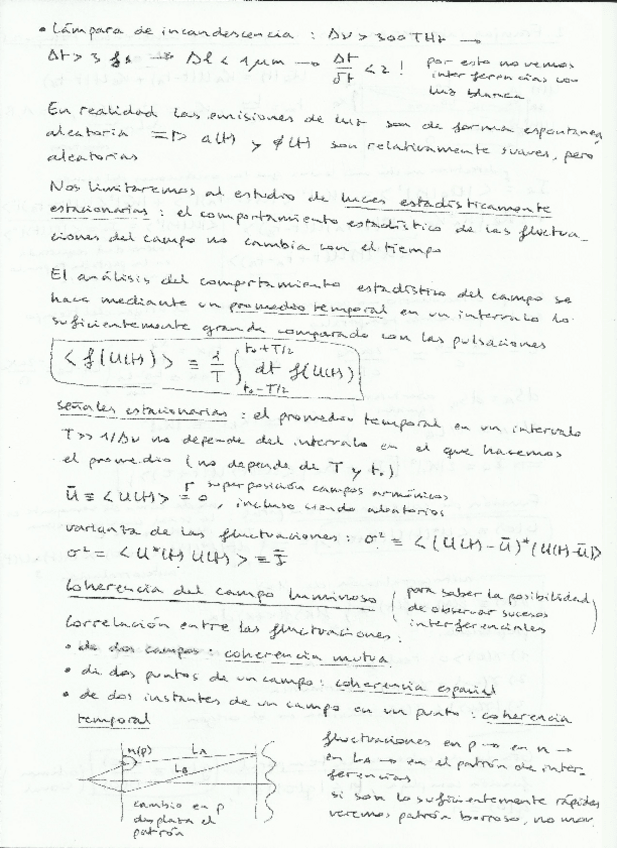 • Lámpara de incandescencia : Δν > 300 THz →
Δt > 3 fs → Δl < 1 μm → Δt/δt < 2 ! por esto no vemos
interferencias con
luz blanca
En realidad las emisiones de luz son de forma espontanea,
aleatoria ⇒ a(t) y φ(t) son relativamente suaves, pero
aleatorias
Nos limitaremos al estudio de luces estadísticamente
estacionarias : el comportamiento estadístico de las fluctua-
ciones del campo no cambia con el tiempo
El análisis del comportamiento estadístico del campo se
hace mediante un promedio temporal en un intervalo lo
suficientemente grande comparado con las pulsaciones
< f(U(t)) > ≡ 1/T ∫_{t₀-T/2}^{t₀+T/2} dt f(U(t))
señales estacionarias : el promedio temporal en un intervalo
T >> 1/Δν no depende del intervalo en el que hacemos
el promedio (no depende de T y t₀)
superposición campos armónicos
Ū ≡ < U(t) > = 0, incluso siendo aleatorios
varianza de las fluctuaciones : σ² = < (U(t) - Ū)* (U(t) - Ū) >
σ² = < U*(t) U(t) > ≡ Ī
Coherencia del campo luminoso (para saber la posibilidad
de observar sucesos
interferenciales)
Correlación entre las fluctuaciones :
• de dos campos : coherencia mutua
• de dos puntos de un campo : coherencia espacial
• de dos instantes de un campo en un punto : coherencia
temporal
n(p) L_A
L_B
cambio en p
desplaza el
patrón
fluctuaciones en p → en n →
en L_A → en el patrón de inter-
ferencias
si son lo suficientemente rápidas
veremos patrón borroso, no mov.